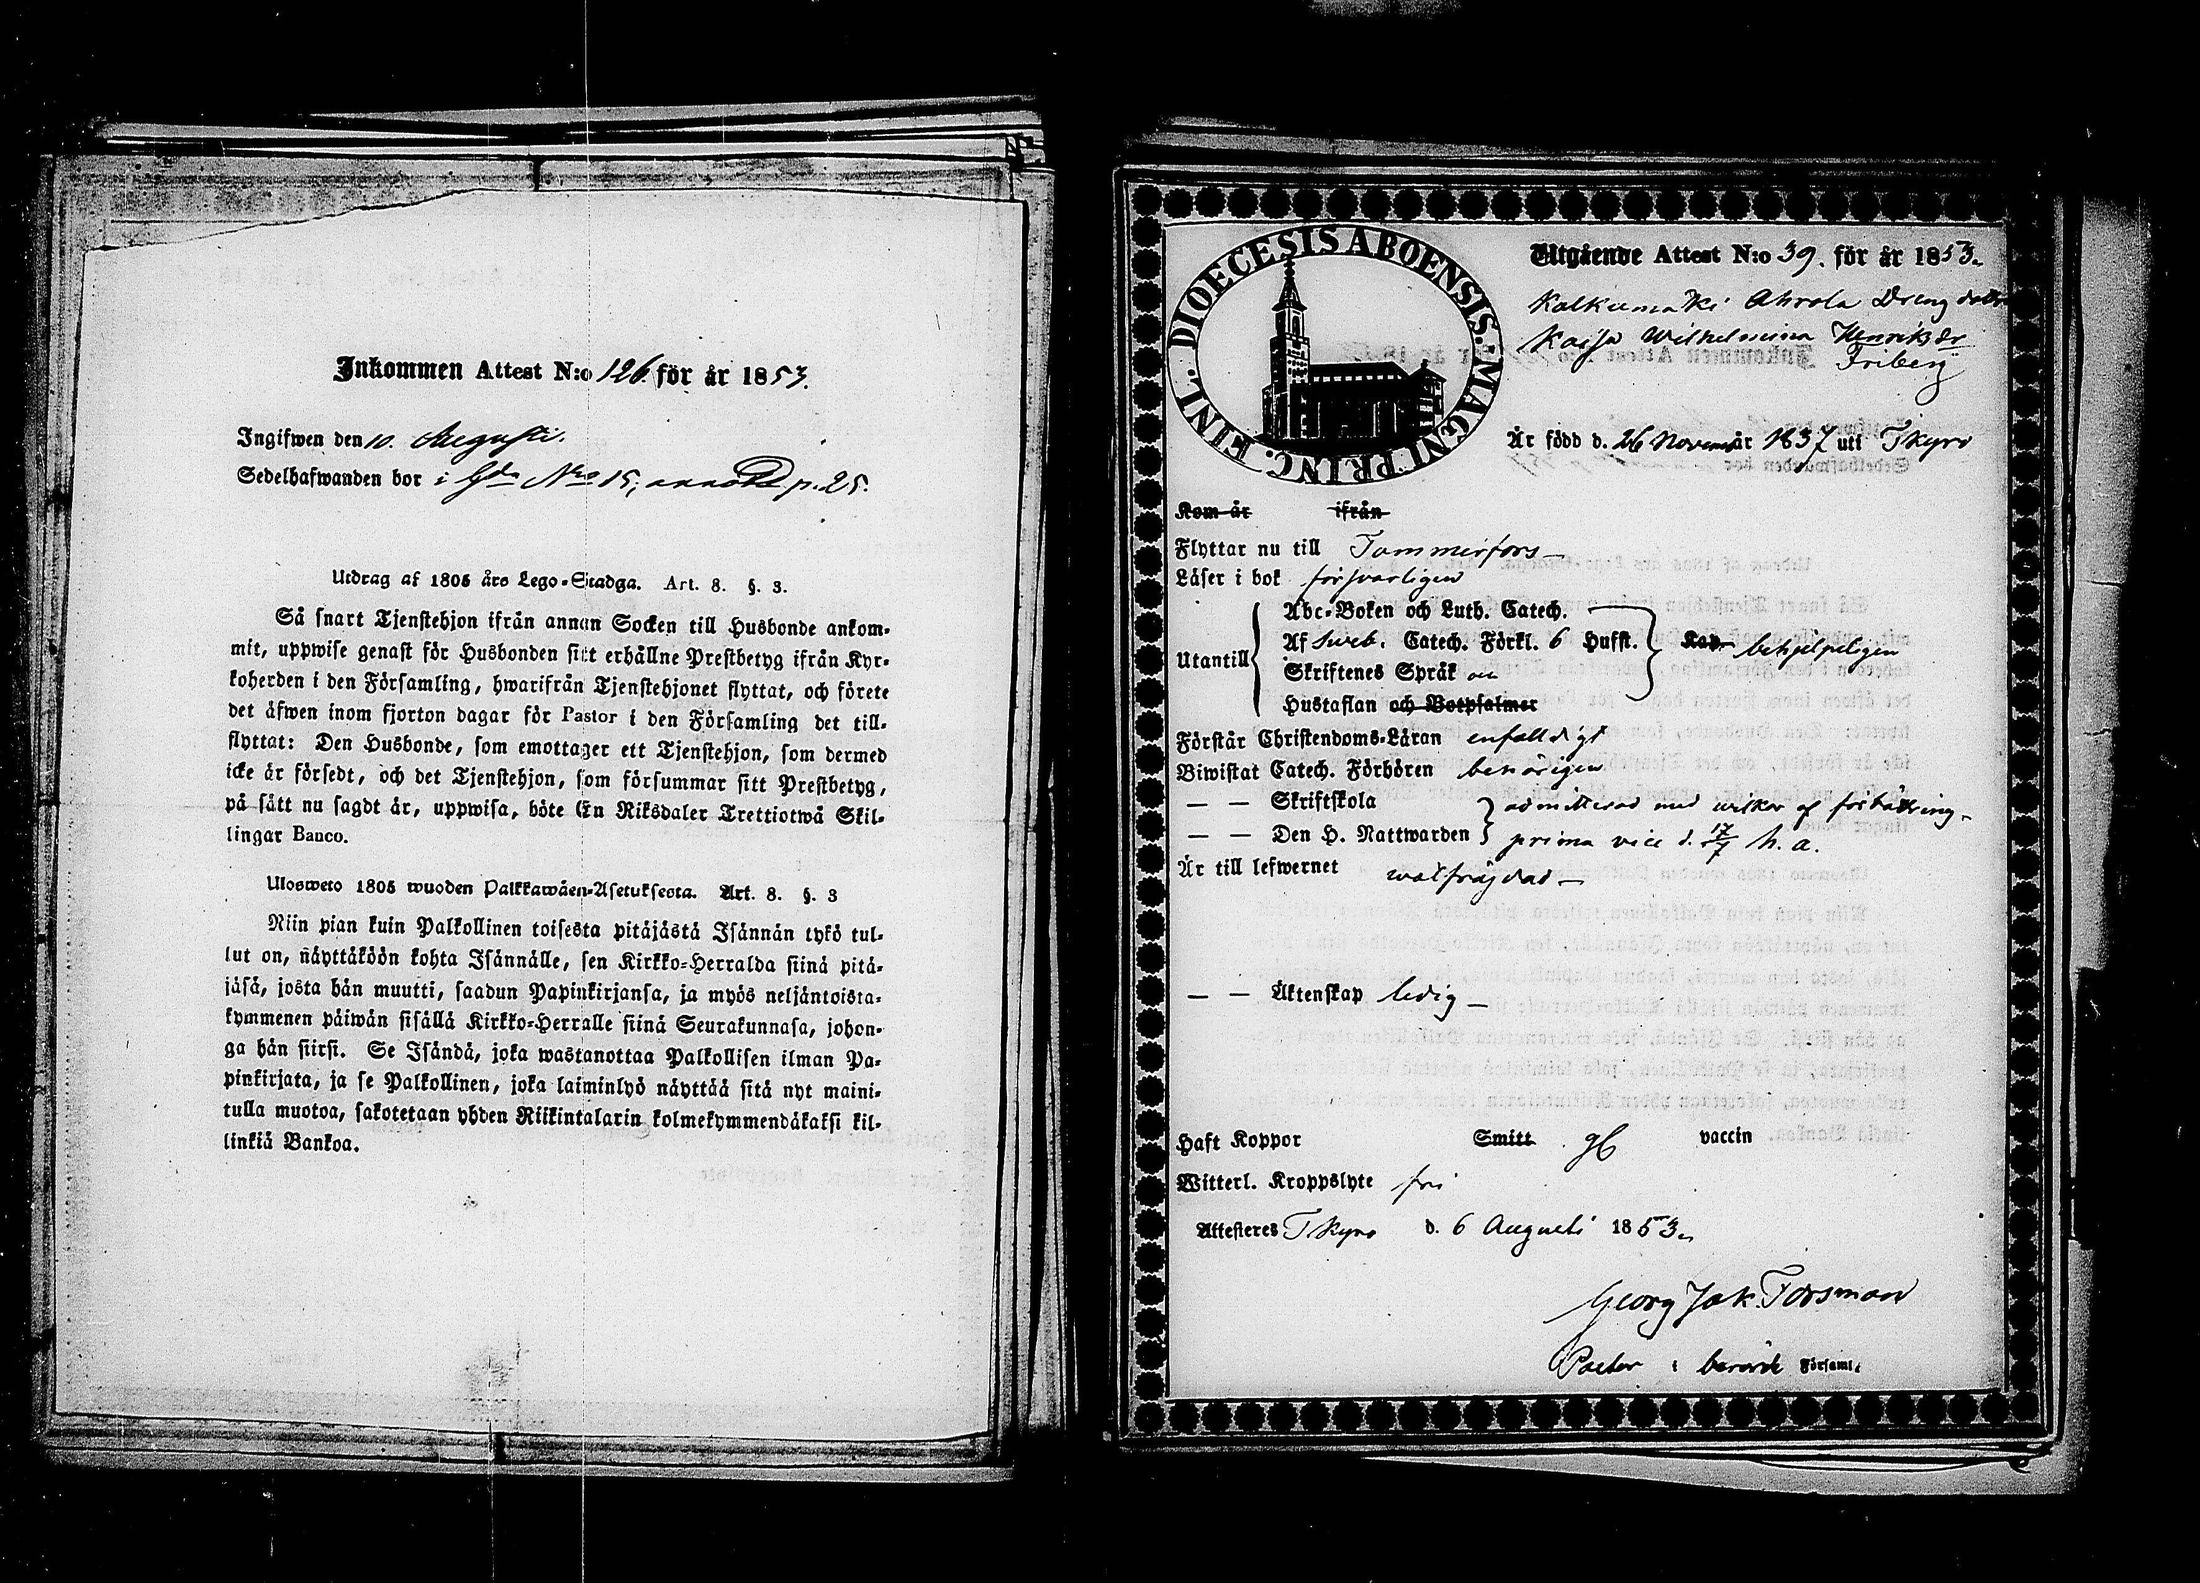 Inkommen Attest N:o 126. för år 1853.
Ingifwen den 10. Augusti.
Sedelhafwanden bor i Gdn Nro 15, p. 25.
Utdrag af 1805 års Lego-Stadga. Art. 8. §. 3.
Så snart Tjenstehjon ifrån annan Socken till Husbonde ankom-
mit, uppwise genast för Husbonden sitt erhållne Prestbetyg ifrån Kyr-
koherden i den Församling, hwarifrån Tjenstehjonet flyttat, och förete
det äfwen inom fjorton dagar för Pastor i den Församling det till-
flyttat: Den Husbonde, som emottager ett Tjenstehjon, som dermed
icke är försedt, och det Tjenstehjon, som försummar sitt Prestbetyg,
på sätt nu sagdt är, uppwisa, böte En Riksdaler Trettiotwå Skil-
lingar Banco.
Ulosweto 1805 wuoden Palkkawäen-Asetuksesta. Art. 8. §. 3
Niin pian kuin Palkollinen toisesta pitäjästä Isännän tykö tul-
lut on, näyttäköön kohta Isännälle, sen Kirkko-Herralda siinä pitä-
jäsä, josta hän muutti, saadun Papinkirjansa, ja myös neljäntoista-
kymmenen päiwän sisällä Kirkko-Herralle siinä Seurakunnasa, johon-
ga hän siirsi. Se Isändä, joka wastanottaa Palkollisen ilman Pa-
pinkirjata, ja se Palkollinen, joka laiminlyö näyttää sitä nyt maini-
tulla muotoa, sakotetaan yhden Riikintalarin kolmekymmendäkaksi kil-
linkiä Bankoa.
DIOECESIS ABOENSIS. MAGNI PRINC. FINL.
Utgående Attest N:o 39. för år 1853.
Kalkunmäki Ahrola Dreng dottr
Kaisa Wilhelmina Henriksdr
Friberg
Är född d. 26 Novemb år 1837 uti Tkyro
Kom år ifrån
Flyttar nu till Tammerfors
Läser i bok försvarligen
Utantill
Abc-Boken och Luth. Catech.
Af Sweb. Catech. Förkl. 6 Hufst. Kap. behjelpeligen
Skriftenes Språk
Hustaflan och Botpsalmer
Förstår Christendoms-Läran enfalldigt
Biwistat Catech. Förhören behörigen
— — Skriftskola admitterad med wilkor af förbättring
— — Den H. Nattwarden prima vice d. 17/7 h. a.
Är till lefwernet wälfrägdad
— — Äktenskap ledig
Haft Koppor Smitt vaccin
Witterl. Kroppslyte fri
Attesteres Tkyro d. 6 Augusti 1853.
Georg Jak. Forsman
Pastor i berörde Församl.